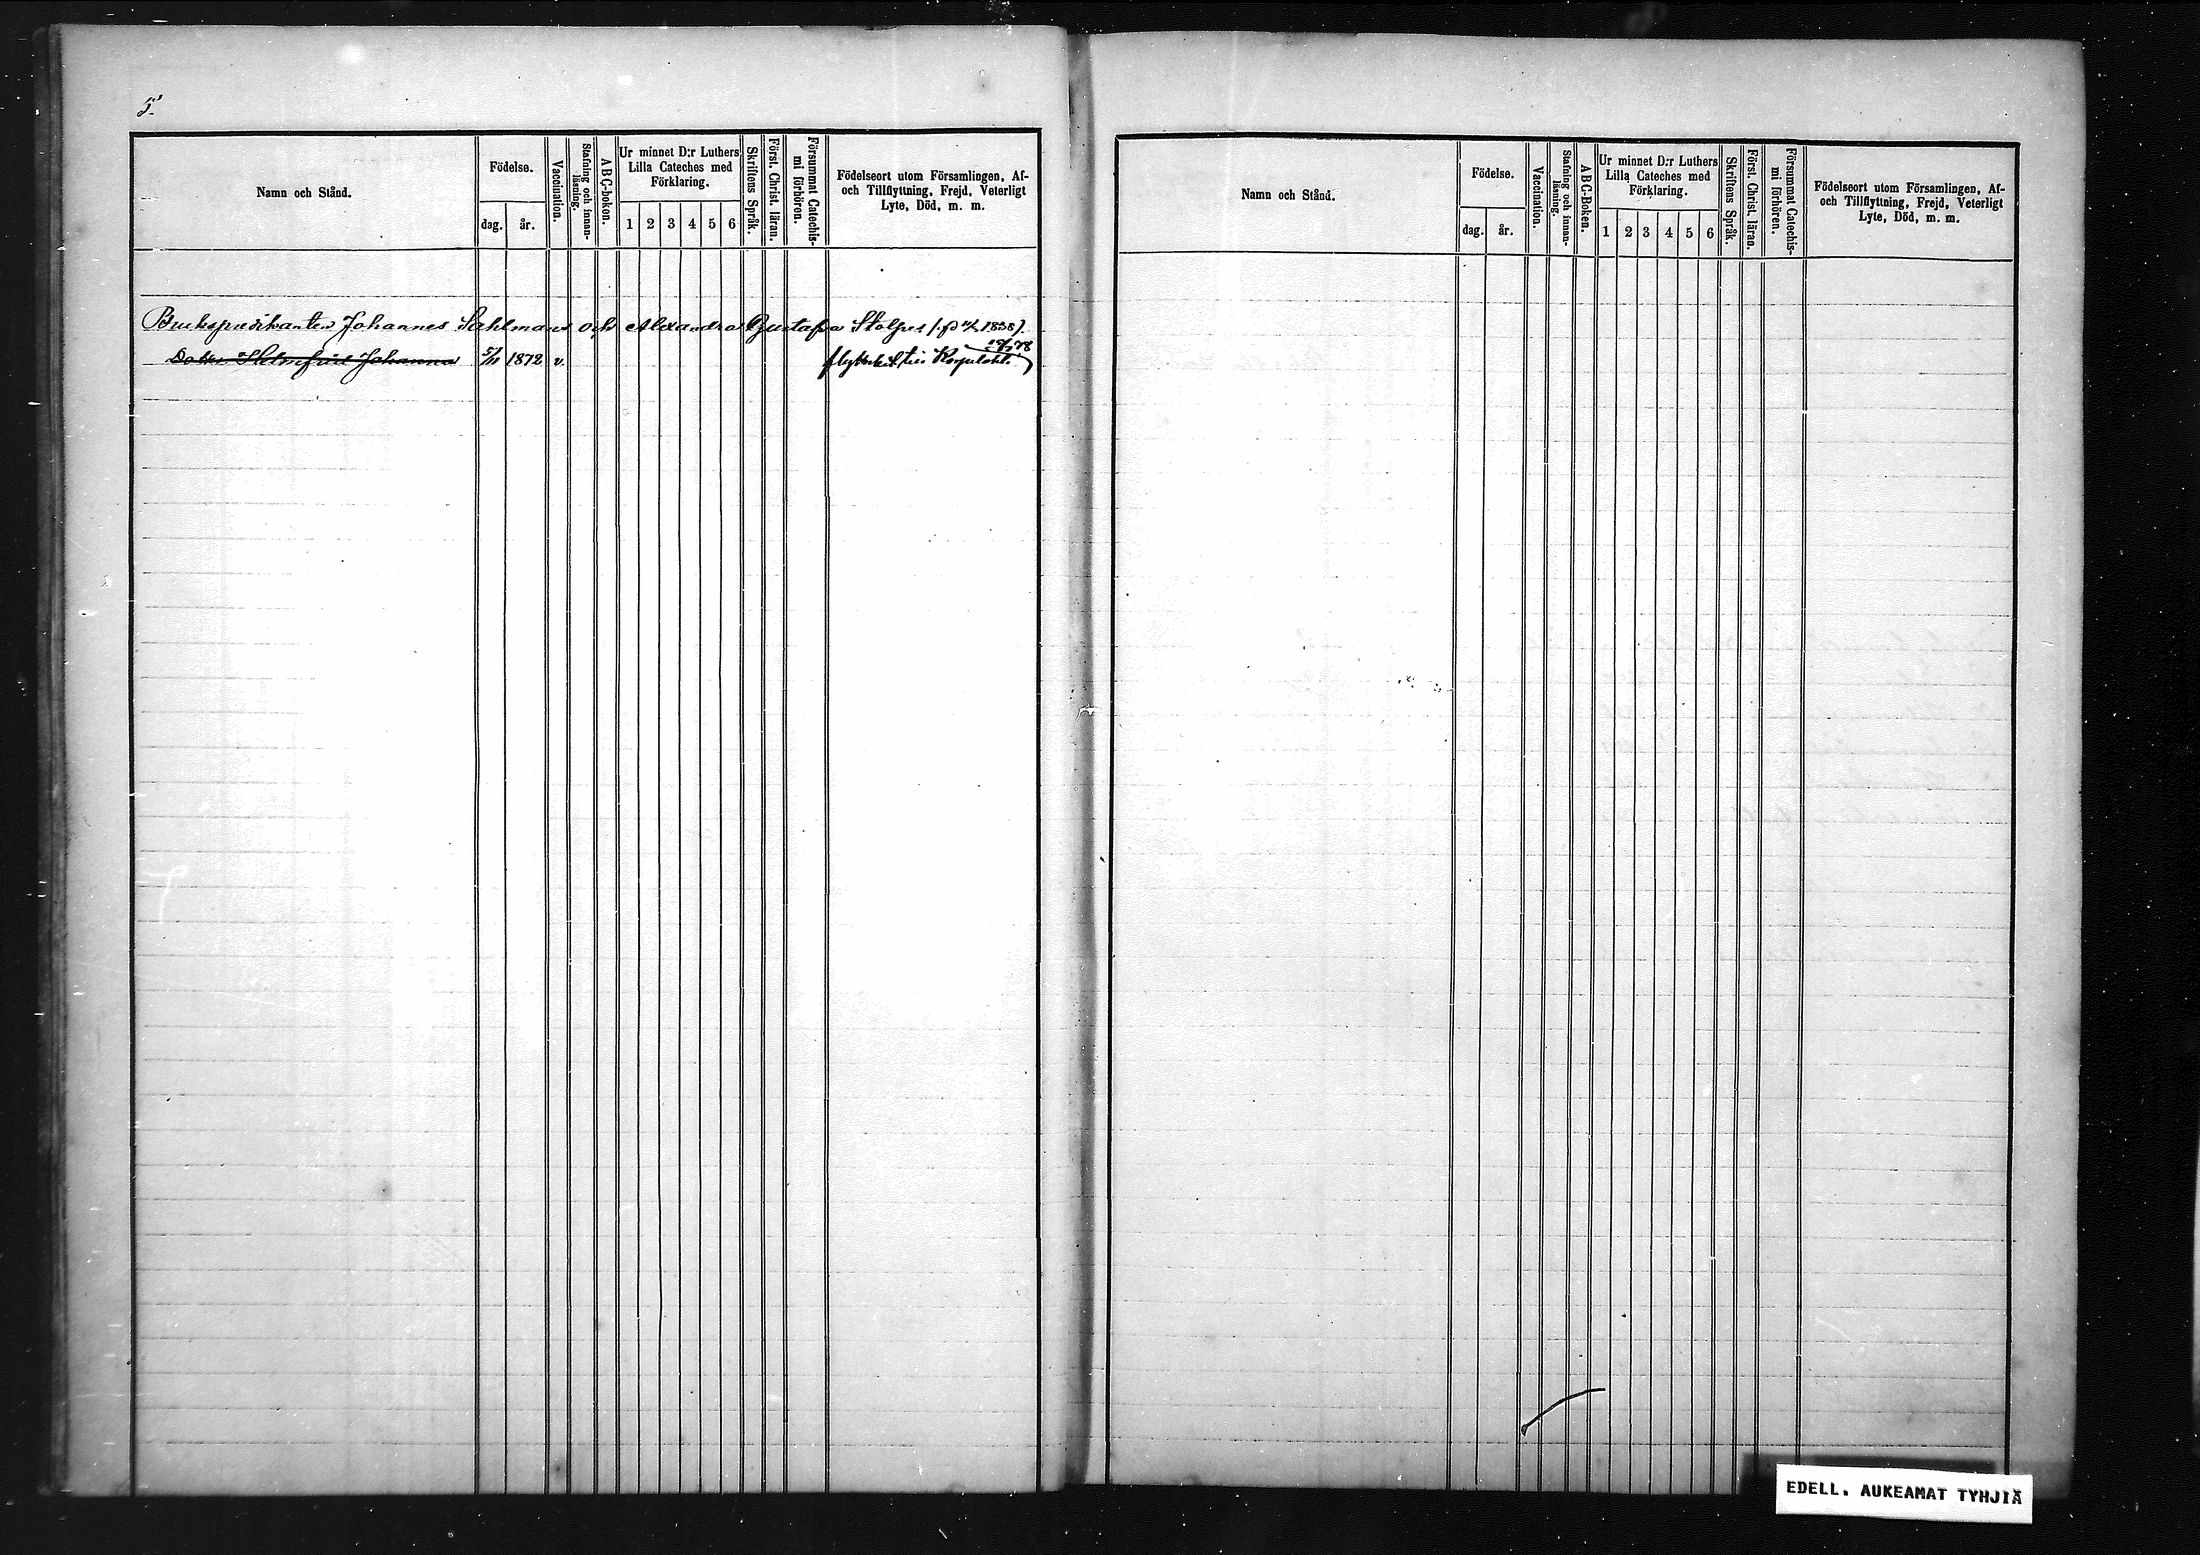 5.
Namn och Stånd.
Födelse.
dag. år.
Vaccination.
Stafning och innanläsning.
ABC-boken.
Ur minnet D:r Luthers
Lilla Cateches med
Förklaring.
1 2 3 4 5 6
Skriftens Språk.
Först. Christ. läran.
Försummat Catechismi förhören.
Födelseort utom Församlingen, Af-
och Tillflyttning, Frejd, Veterligt
Lyte, Död, m. m.
Johannes Sahlman och Alexandra Gustafva Stolpes 1838)
Johanna 5/11 1872 v.
Namn och Stånd.
Födelse.
dag. år.
Vaccination.
Stafning och innanläsning.
ABC-Boken.
Ur minnet D:r Luthers
Lilla Cateches med
Förklaring.
1 2 3 4 5 6
Skriftens Språk.
Först. Christ. läran.
Försummat Catechismi förhören.
Födelseort utom Församlingen, Af-
och Tillflyttning, Frejd, Veterligt
Lyte, Död, m. m.
EDELL. AUKEAMAT TYHJIÄ